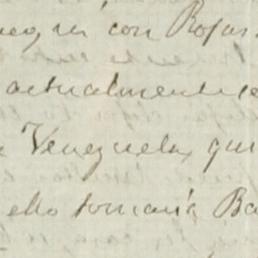 con Rojas
actualmente
Venezuela, qui
ello tomará Ba